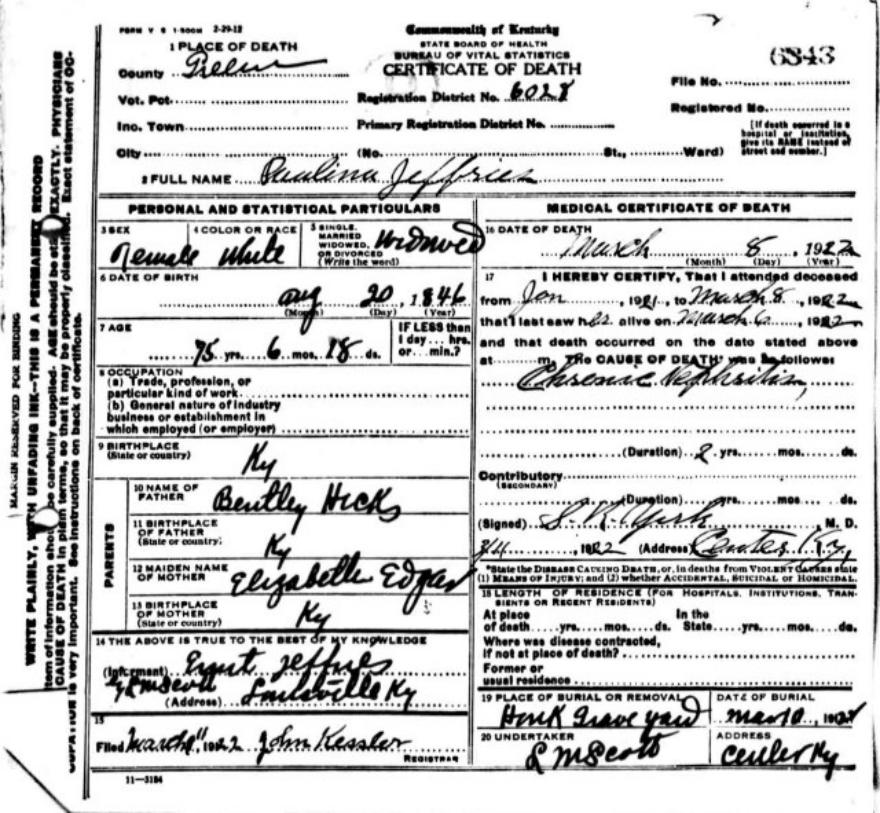 FORM V S 1-500M 2-29-12
Commonwealth of Kentucky
STATE BOARD OF HEALTH
BUREAU OF VITAL STATISTICS
CERTIFICATE OF DEATH
1 PLACE OF DEATH
County Green
Vot. Pct.
Inc. Town
City (No. St., Ward)
Registration District No. 6028
Primary Registration District No.
6843
File No.
Registered No.
[If death occurred in a
hospital or institution,
give its NAME instead of
street and number.]
2 FULL NAME Paulina Jeffries
PERSONAL AND STATISTICAL PARTICULARS
3 SEX
Female
4 COLOR OR RACE
White
5 SINGLE,
MARRIED
WIDOWED,
OR DIVORCED
(Write the word)
Widowed
6 DATE OF BIRTH
Aug 20, 1846
(Month) (Day) (Year)
7 AGE
75 yrs. 6 mos. 18 ds.
IF LESS than
1 day... hrs.
or... min.?
8 OCCUPATION
(a) Trade, profession, or
particular kind of work
(b) General nature of industry
business or establishment in
which employed (or employer)
9 BIRTHPLACE
(State or country)
Ky
PARENTS
10 NAME OF
FATHER
Bentley Hicks
11 BIRTHPLACE
OF FATHER
(State or country)
Ky
12 MAIDEN NAME
OF MOTHER
Elizabeth Edgar
13 BIRTHPLACE
OF MOTHER
(State or country)
Ky
14 THE ABOVE IS TRUE TO THE BEST OF MY KNOWLEDGE
(Informant) Ernest Jeffries
(Address) Louisville Ky
15
Filed March 11 1922 John Kessler
REGISTRAR
11-3184
MEDICAL CERTIFICATE OF DEATH
16 DATE OF DEATH
March 8, 1922
(Month) (Day) (Year)
17 I HEREBY CERTIFY, That I attended deceased
from Jan, 1921, to March 8, 1922
that I last saw her alive on March 6, 1922
and that death occurred on the date stated above
at m. The CAUSE OF DEATH* was as follows:
Chronic Nephritis,
(Duration) 2 yrs. mos. ds.
Contributory
(SECONDARY)
(Duration) yrs. mos. ds.
(Signed) M. D.
, 1922 (Address) Center Ky.
*State the DISEASE CAUSING DEATH, or, in deaths from VIOLENT CAUSES state
(1) MEANS OF INJURY; and (2) whether ACCIDENTAL, SUICIDAL or HOMICIDAL.
18 LENGTH OF RESIDENCE (FOR HOSPITALS, INSTITUTIONS, TRAN-
SIENTS OR RECENT RESIDENTS)
At place In the
of death yrs. mos. ds. State yrs. mos. ds.
Where was disease contracted,
if not at place of death?
Former or
usual residence
19 PLACE OF BURIAL OR REMOVAL
Grave yard
DATE OF BURIAL
Mar 10, 1922
20 UNDERTAKER
L M Scott
ADDRESS
Center Ky
MARGIN RESERVED FOR BINDING
WRITE PLAINLY, WITH UNFADING INK—THIS IS A PERMANENT RECORD
item of information should be carefully supplied. AGE should be EXACTLY. PHYSICIANS
CAUSE OF DEATH in plain terms, so that it may be properly classified. Exact statement of OC-
CUPATION is very important. See instructions on back of certificate.